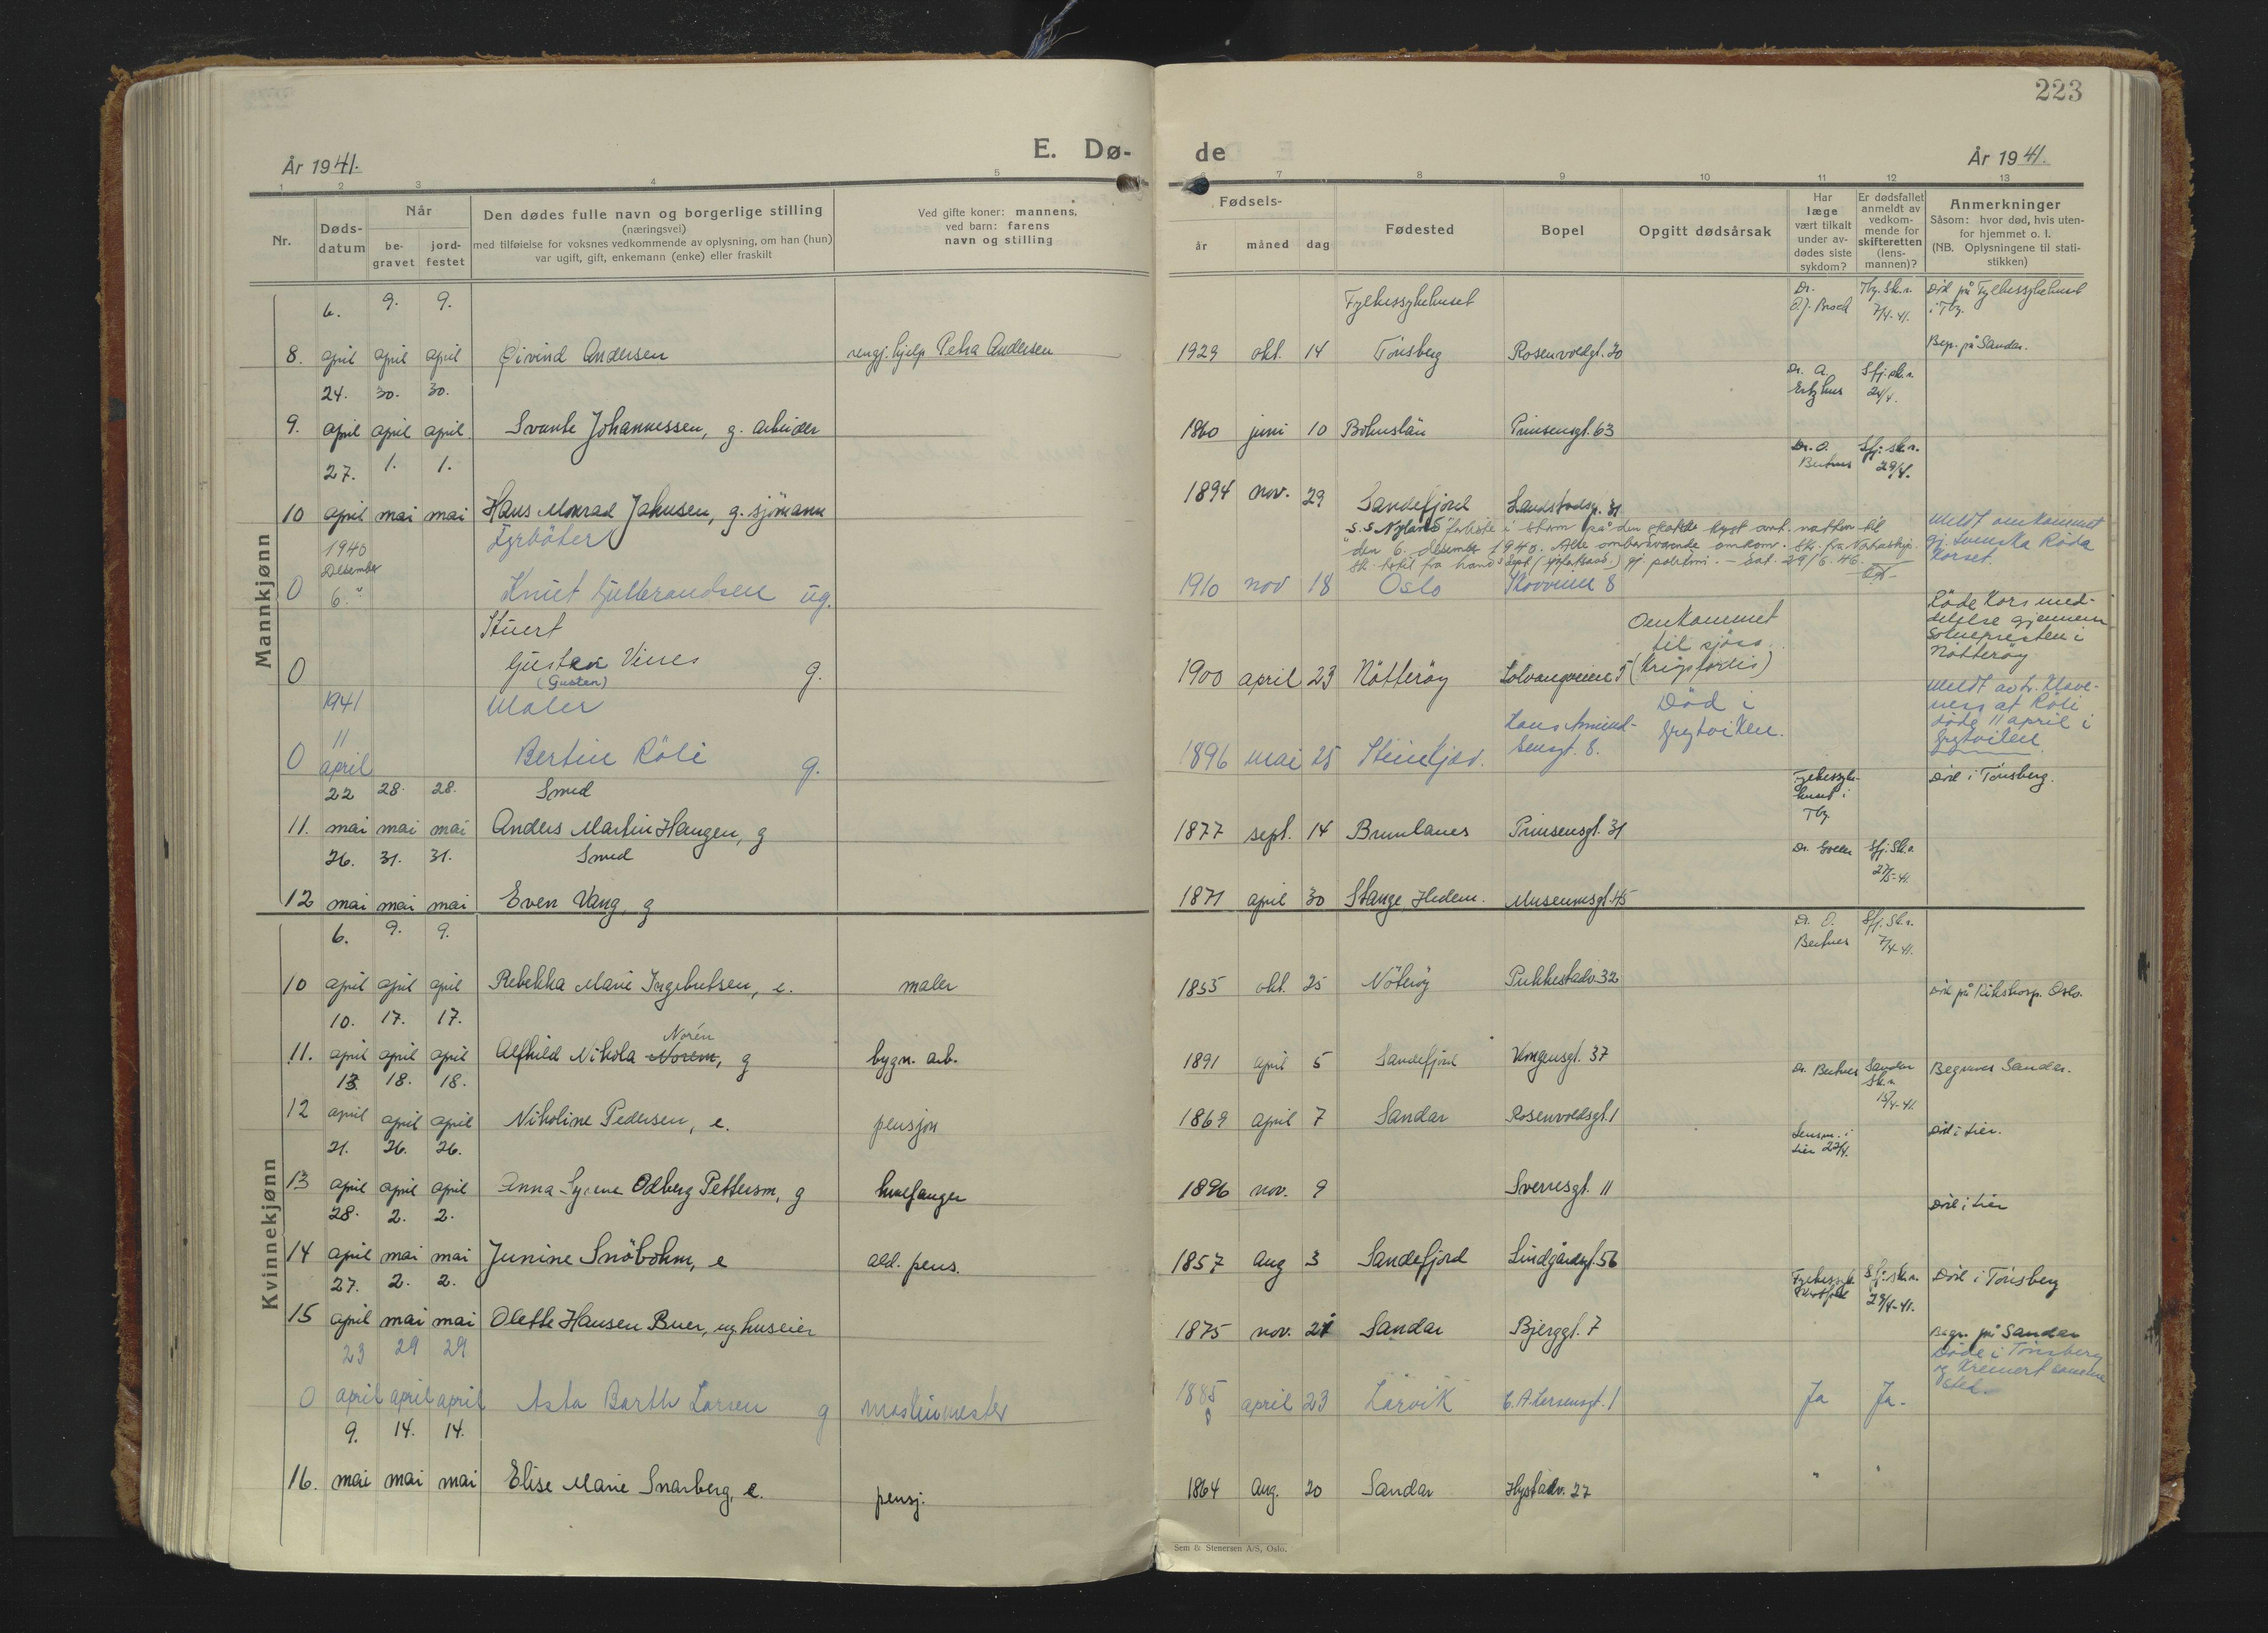 223
År 1941.
E. Dø-
de
År 1941.
1 2 3 4 5 7 8 9 10 11 12 13
Nr.
Døds-
datum
Når
be-
gravet
jord-
festet
Den dødes fulle navn og borgerlige stilling
(næringsvei)
med tilføielse for voksnes vedkommende av oplysning, om han (hun)
var ugift, gift, enkemann (enke) eller fraskilt
Ved gifte koner: mannens,
ved barn: farens
navn og stilling
Fødsels-
år måned dag
Fødested
Bopel
Opgitt dødsårsak
Har
læge
vært tilkalt
under av-
dødes siste
sykdom?
Er dødsfallet
anmeldt av
vedkom-
mende for
skifteretten
(lens-
mannen)?
Anmerkninger
Såsom: hvor død, hvis uten-
for hjemmet o. l.
(NB. Oplysningene til stati-
stikken)
Mannkjønn
6. 9. 9. Fylkessykehuset Dr. Tbg. Sk.r. Død på Fylkessykehuset
O.J. Broch 7/4-41. i Tbg.
8. april april april Øivind Andersen rengj. hjelp Petra Andersen 1929 okt. 14 Tönsberg Rosenvoldgt. 30 Begr. på Sandar.
24. 30. 30. Dr. A. Sfj. sk.r.
24/4.
9. april april april Svante Johannessen, g. arbeider 1860 juni 10 Bohuslän Prinsensgt. 63
27. 1. 1. Dr. O. Sfj. sk.r.
29/4.
10 april mai mai Hans Monrad Jahnsen, g. sjömann 1894 nov. 29 Sandefjord
Fyrböter
1940
Desember
6.
S.S. "Nyland" forliste i storm på den skotske kyst ont. natten til
den 6. desember 1940. Alle ombordværende omkom.
29/6.46.
0 Knut Gulbrandsen ug. 1910 nov 18 Oslo Skovveien 8
Meldt omkommet
gj. Svenska Röda
Korset.
Stuert
0 Gusten Vines g. 1900 april 23 Nötteröy Solvangveien 5
(Gusten)
Omkommet
til sjöss
(Krigsforlis)
Röde Kors med-
delelse gjennem
Soknepresten i
Nötteröy
1941 Maler
11
0 april Bertin Röli g. 1896 mai 25 Steinkjær. Lars Amund-
sensgt. 8.
Död i
Grytviken.
Meldt av
at Röli
döde 11 april i
Grytviken
22 28. 28. Smed Fylkessyke-
huset i
Tbg
Död i Tönsberg.
11. mai mai mai Anders Martin Haugen, g 1877 sept. 14 Brunlanes Prinsensgt. 31
26. 31. 31. Smed Dr. Sfj. Sk.r.
27/5-41.
12 mai mai mai Even Vang, g 1871 april 30 Stange, Hedem. Museumsgt. 45
Kvinnekjønn
6. 9. 9. Dr. O. Sfj. Sk.r.
7/4-41.
10 april april april Rebekka Marie Ingebretsen, e. maler 1855 okt. 25 Nöteröy Pukkestadv. 32
10. 17. 17. Norén Död på Rikshosp. Oslo.
11. april april april Alfhild Nikola Norem, g bygn. arb. 1891 april 5 Sandefjord Kongensgt. 37
13 18. 18. Dr. Sandar
Sk.r.
15/4-41.
Begraves Sandar.
12 april april april Nikoline Pedersen, e. pensjon 1869 april 7 Sandar Rosenvoldsgt. 1
21. 26. 26. Lensm. i
Lier 22/4.
Död i Lier.
13 april april april Anna Syrene Odberg Pettersen, g hvalfanger 1896 nov. 9 Sverresgt. 11
28. 2. 2. Död i Lier
14 april mai mai Junine Snöbohm, e ald. pens. 1857 aug 3 Sandefjord Lindgårdsgt. 56
27. 2. 2. Sfj. sk.r.
29/4-41.
Död i Tönsberg
15 april mai mai Olette Hansen Buer, ug huseier 1875 nov. 21 Sandar Bjerggt. 7
Begr. på Sandar
23 29 29 Döde i Tönsberg
og kremert samme
sted.
0 april april april Asta Barth Larsen g maskinmester 1885 april 23 Larvik C. A. Larsensgt. 1 Ja Ja.
9. 14. 14.
16. mai mai mai Elise Marie Snarberg, e. pensj. 1864 aug. 20 Sandar Hystadv. 27 " "
Sem & Stenersen A/S, Oslo.